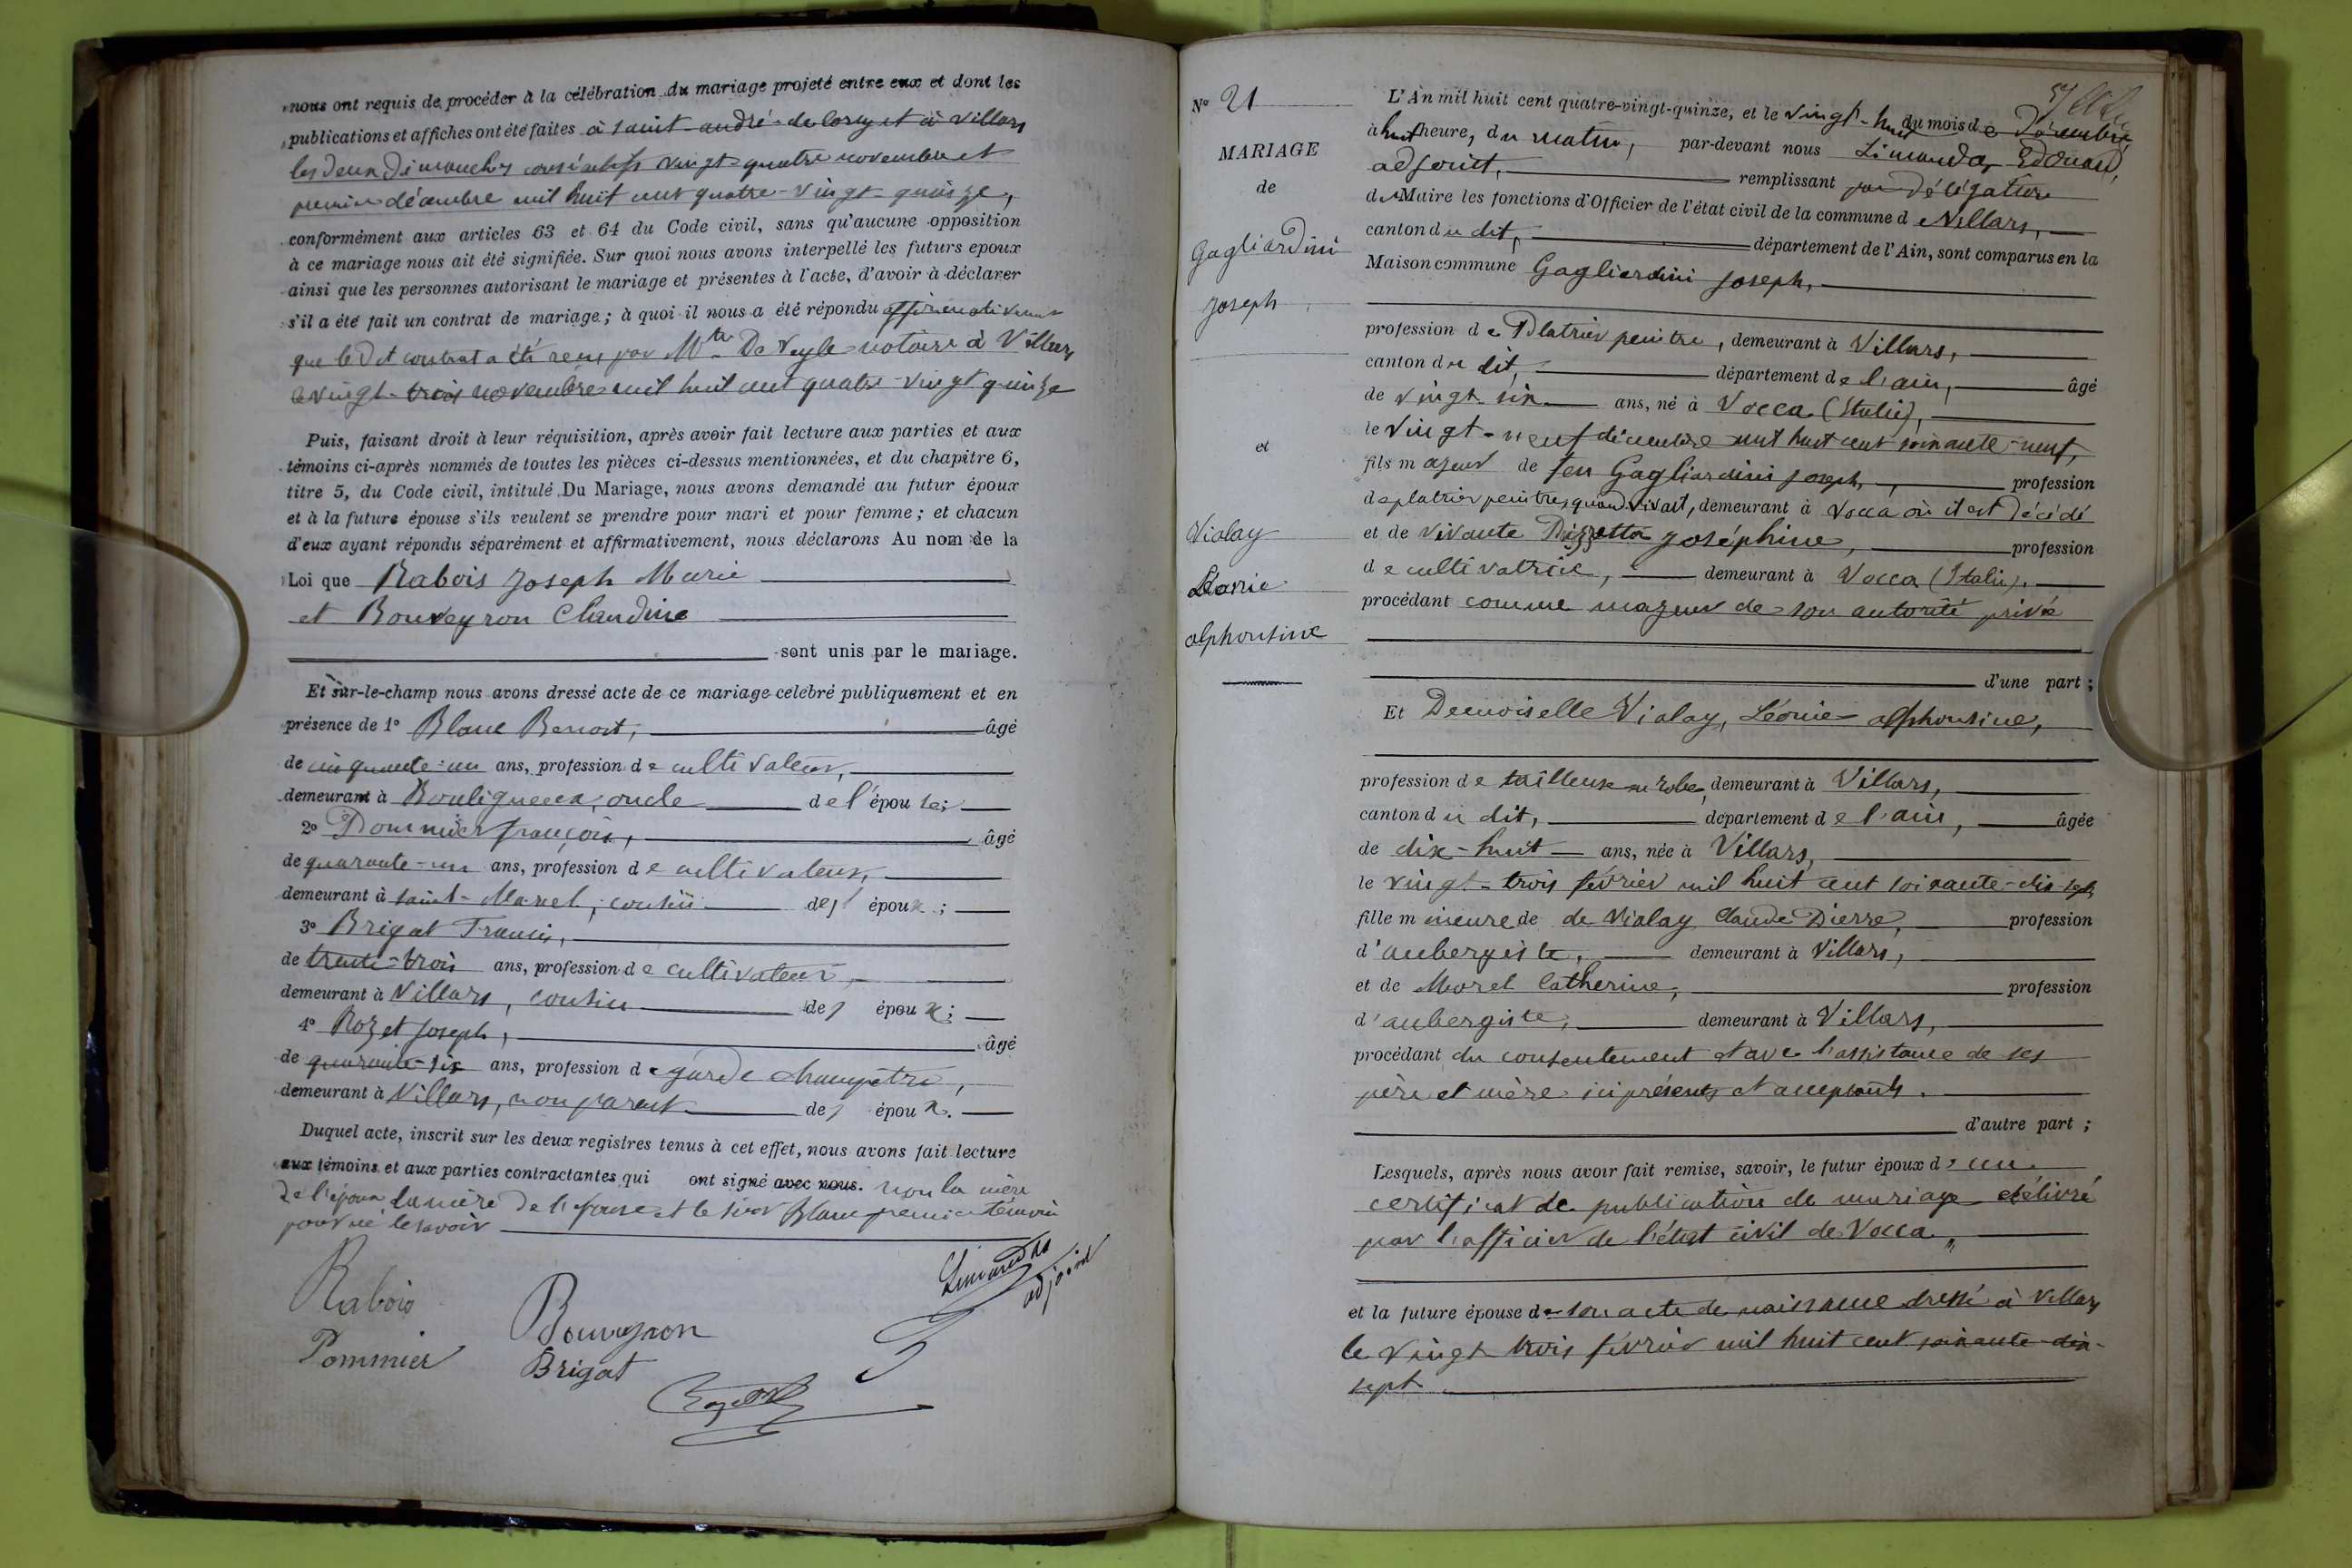 nous ont requis de procéder à la célébration du mariage projeté entre eux et dont les
publications et affiches ont été faites à Saint-andré-de-Corcy et à Villars
les deux dimanches consécutifs vingt-quatre novembre et
premier décembre mil huit cent quatre-vingt-quinze,
conformément aux articles 63 et 64 du Code civil, sans qu'aucune opposition
à ce mariage nous ait été signifiée. Sur quoi nous avons interpellé les futurs epoux
ainsi que les personnes autorisant le mariage et présentes à l'acte, d'avoir à déclarer
s'il a été fait un contrat de mariage; à quoi il nous a été répondu affirmativement
que ledit contrat a été reçu par Mtre De Veyle notaire à Villars
le vingt-trois novembre mil huit cent quatre-vingt quinze
Puis, faisant droit à leur réquisition, après avoir fait lecture aux parties et aux
témoins ci-après nommés de toutes les pièces ci-dessus mentionnées, et du chapitre 6,
titre 5, du Code civil, intitulé Du Mariage, nous avons demandé au futur époux
et à la future épouse s'ils veulent se prendre pour mari et pour femme; et chacun
d'eux ayant répondu séparément et affirmativement, nous déclarons Au nom de la
Loi que Rabois Joseph Marie
et Bouveyron Claudine
sont unis par le mariage.
Et sur-le-champ nous avons dressé acte de ce mariage celebré publiquement et en
présence de 1° Blanc Benoit, âgé
de cinquante-un ans, profession de cultivateur,
demeurant à Bouligneux, oncle de l'épouse;
2° Pommier françois, âgé
de quarante-un ans, profession de cultivateur,
demeurant à Saint-Marcel, cousin des époux;
3° Brigat Francis,
de trente-trois ans, profession de cultivateur,
demeurant à Villars, cousin des époux;
4° Rozet Joseph, âgé
de quarante-six ans, profession de garde champêtre,
demeurant à Villars, non parent des époux.
Duquel acte, inscrit sur les deux registres tenus à cet effet, nous avons fait lecture
aux témoins et aux parties contractantes qui ont signé avec nous. non la mère
de l'époux la mère de l'épouse et le sieur Blanc premier témoin
pour ne le savoir
Limandas
adjoint
Rabois
Bouveyron
Pommier
Brigat
Rozet
N° 21
MARIAGE
de
Gagliardini
Joseph
et
Vialay
Léonie
alphonsine
L'An mil huit cent quatre-vingt-quinze, et le vingt-huit du mois de Décembre
à huit heure, du matin, par-devant nous Limandas Edouard,
adjoint, remplissant par délégation
du Maire les fonctions d'Officier de l'état civil de la commune de Villars,
canton du dit, département de l'Ain, sont comparus en la
Maison commune Gagliardini Joseph,
profession de Platrier peintre, demeurant à Villars,
canton du dit, département de l'ain, âgé
de vingt-six ans, né à Vocca (Italie),
le vingt-neuf décembre mil huit cent soixante-neuf,
fils majeur de feu Gagliardini Joseph, profession
de platrier peintre, quand vivait, demeurant à Vocca où il est décédé
et de vivante Joséphine, profession
de cultivatrice, demeurant à Vocca (Italie).
procédant comme majeur de son autorité privée
d'une part;
Et Demoiselle Vialay, Léonie alphonsine,
profession de tailleuse en robe, demeurant à Villars,
canton du dit, département de l'ain, âgée
de dix-huit ans, née à Villars,
le vingt-trois février mil huit cent soixante-dix-sept,
fille mineure de de Vialay Claude Pierre, profession
d'aubergiste, demeurant à Villars,
et de Morel Catherine, profession
d'aubergiste, demeurant à Villars,
procédant du consentement et avec l'assistance de ses
père et mère ici présents et acceptants.
d'autre part;
Lesquels, après nous avoir fait remise, savoir, le futur époux d'un
certificat de publication de mariage délivré
par l'officier de l'état civil de Vocca,
et la future épouse de son acte de naissance dressé à Villars
le vingt-trois février mil huit cent soixante-dix-
sept